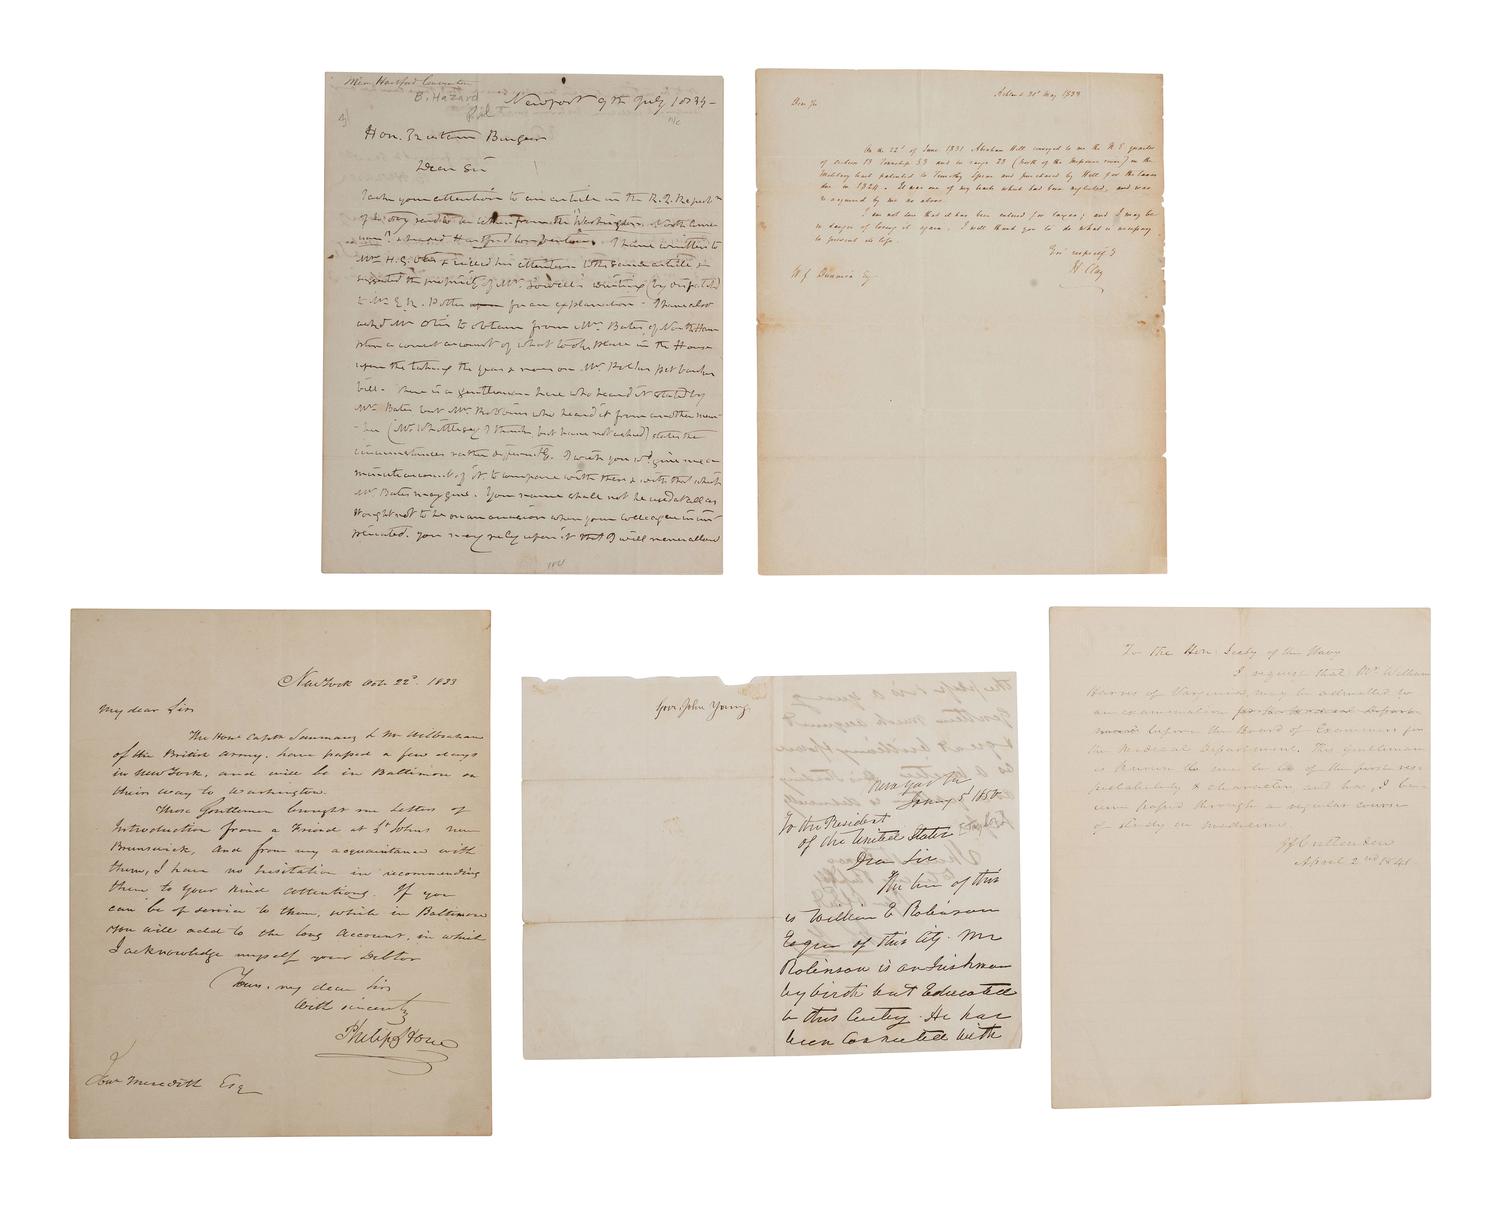 Mem. Hartford Convention
B. Hazard
Newport 9th July 1834
Hon. Tristam Burges
Dear Sir
I ask your attention to an article in the R.I. Repubn
from the Washington, North Ame
Hartford Convention. I have written to
Mr. H. G. Otis & called his attention to the same article &
the propriety of Mr. Lowell's writing
to Mr. E. R. Potter for an explanation. I have also
asked Mr. Otis to obtain from Mr. Bates, of North Ham
pton a correct account of what took place in the House
upon the taking the yeas & nays on Mr. Polk's pet banks
bill. There is a gentleman here who heard it stated by
Mr. Bates but Mr. Robbins who heard it from another mem
ber (Mr. Whittlesey I think, but have not asked) states the
circumstances rather differently. I wish you wd. give me a
minute account of it to compare with these & with that which
Mr. Bates may give. Your name shall not be used at all as
it ought not to be on an occasion when your colleague is im
plicated. you may rely upon it that I will never allow
Ashland 21t May 1833
Dear Sir
On the 22d. of June 1831 Abraham Hill conveyed to me the N. E quarter
of section 13 Township 53 and in range 23 (North of the Missouri river) in the
Military tract patented to Timothy Spear and purchased by Hill for the taxes
due in 1824. It was one of my tracts which had been neglected, and was
re acquired by me as above.
I am not sure that it has been entered for taxes; and I may be
in danger of losing it again. I will thank you to do what is necessary
to prevent its loss.
Yrs respectfy
H. Clay
W. G. Esq
New York Oct. 22d. 1833
My dear Sir
The Hone Captn & Mr Wilbraham
of the British Army, have passed a few days
in New York, and will be in Baltimore on
their way to Washington.
These Gentlemen brought me Letters of
Introduction from a Friend at St Johns New
Brunswick, and from my acquaintance with
them, I have no hesitation in recommending
them to your kind attentions. If you
can be of service to them, while in Baltimore
you will add to the long Account, in which
I acknowledge myself your Debtor
Yours. my dear Sir
With sincerity
Philip Hone
Meredith Esq
Gov. John Young
New York
Jany 5t 1850
To the President
of the United States
Dear Sir
The bearer of this
is William E Robinson
Esquire of this City. Mr
Robinson is an Irishman
by birth but Educated
in this Country. He has
been connected with
To the Hon: Secty of the Navy
I request that Mr William
of Virginia, may be admitted to
an examination
before the Board of Examiners for
the Medical Department. This gentleman
is known to me to be of the first res
pectability & character, and has, I be
lieve passed through a regular course
of study in medicine.
JJ Crittenden
April 2nd 1841